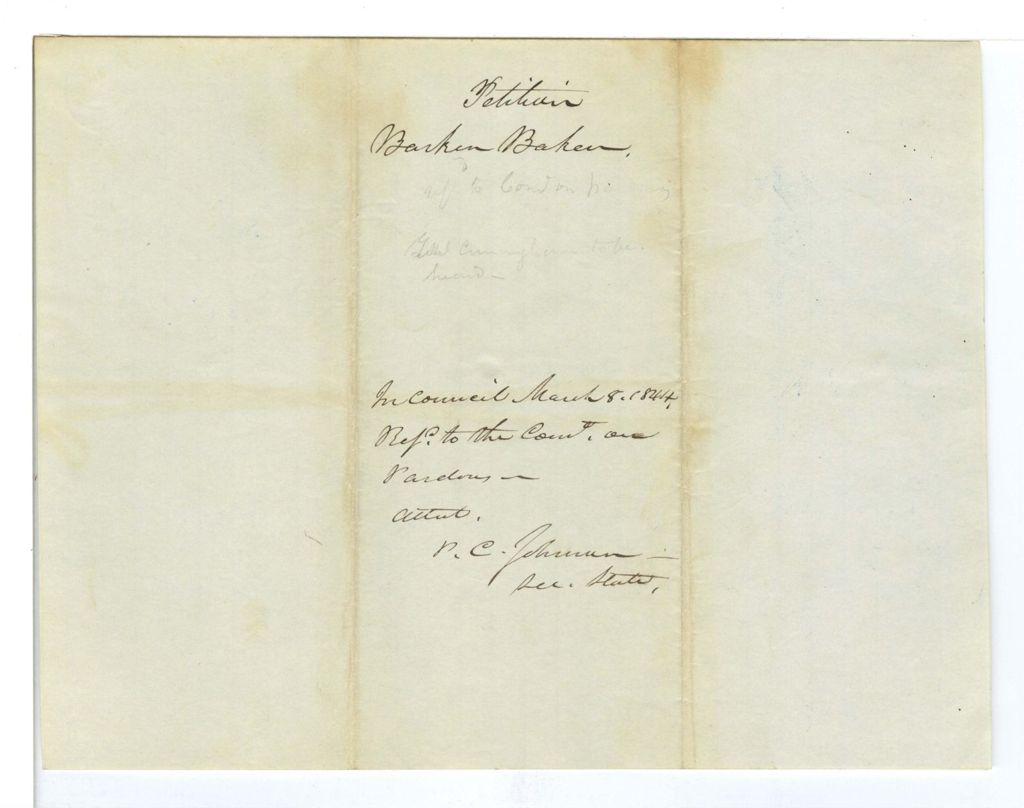 Petition
Barker Baker.
refd to Com on
to be
heard
In Council March 8. 1844,
Refd. to the Comt. on
Pardons —
Attest.
P. C. Johnson —
Sec. State,